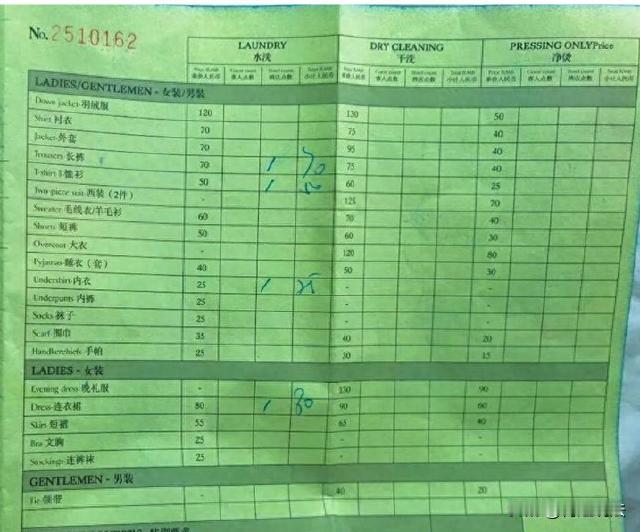 No. 2510162
LAUNDRY 水洗 DRY CLEANING 干洗 PRESSING ONLY Price 净烫
Price RAMB Guest count Hotel count Total RAMB Price RAMB Guest count Hotel count Total RAMB Price RAMB Guest count Hotel count Total RAMB
单价人民币 客人点数 酒店点数 小计人民币 单价人民币 客人点数 酒店点数 小计人民币 单价人民币 客人点数 酒店点数 小计人民币
LADIES/GENTLEMEN - 女装/男装
Down jacket-羽绒服 120 130 50
Shirt 衬衣 70 75 40
Jacket-外套 70 95 40
Trousers-长裤 70 1 70 75 40
T-shirt-T恤衫 50 1 50 60 25
Two-piece suit-西装（2件） - 125 70
Sweater 毛线衣/羊毛衫 60 70 40
Shorts 短裤 50 60 30
Overcoat 大衣 - 120 80
Pyjamas-睡衣（套） 40 50 30
Undershirt-内衣 25 1 25 - -
Underpants 内裤 25 - -
Socks-袜子 25 - -
Scarf-围巾 35 40 20
Handkerchiefs 手帕 25 30 15
LADIES - 女装
Evening dress-晚礼服 - 130 90
Dress-连衣裙 80 1 80 90 60
Skirt 短裙 55 65 40
Bra 文胸 25 - -
Stockings-连裤袜 25 - -
GENTLEMEN - 男装
Tie-领带 40 20